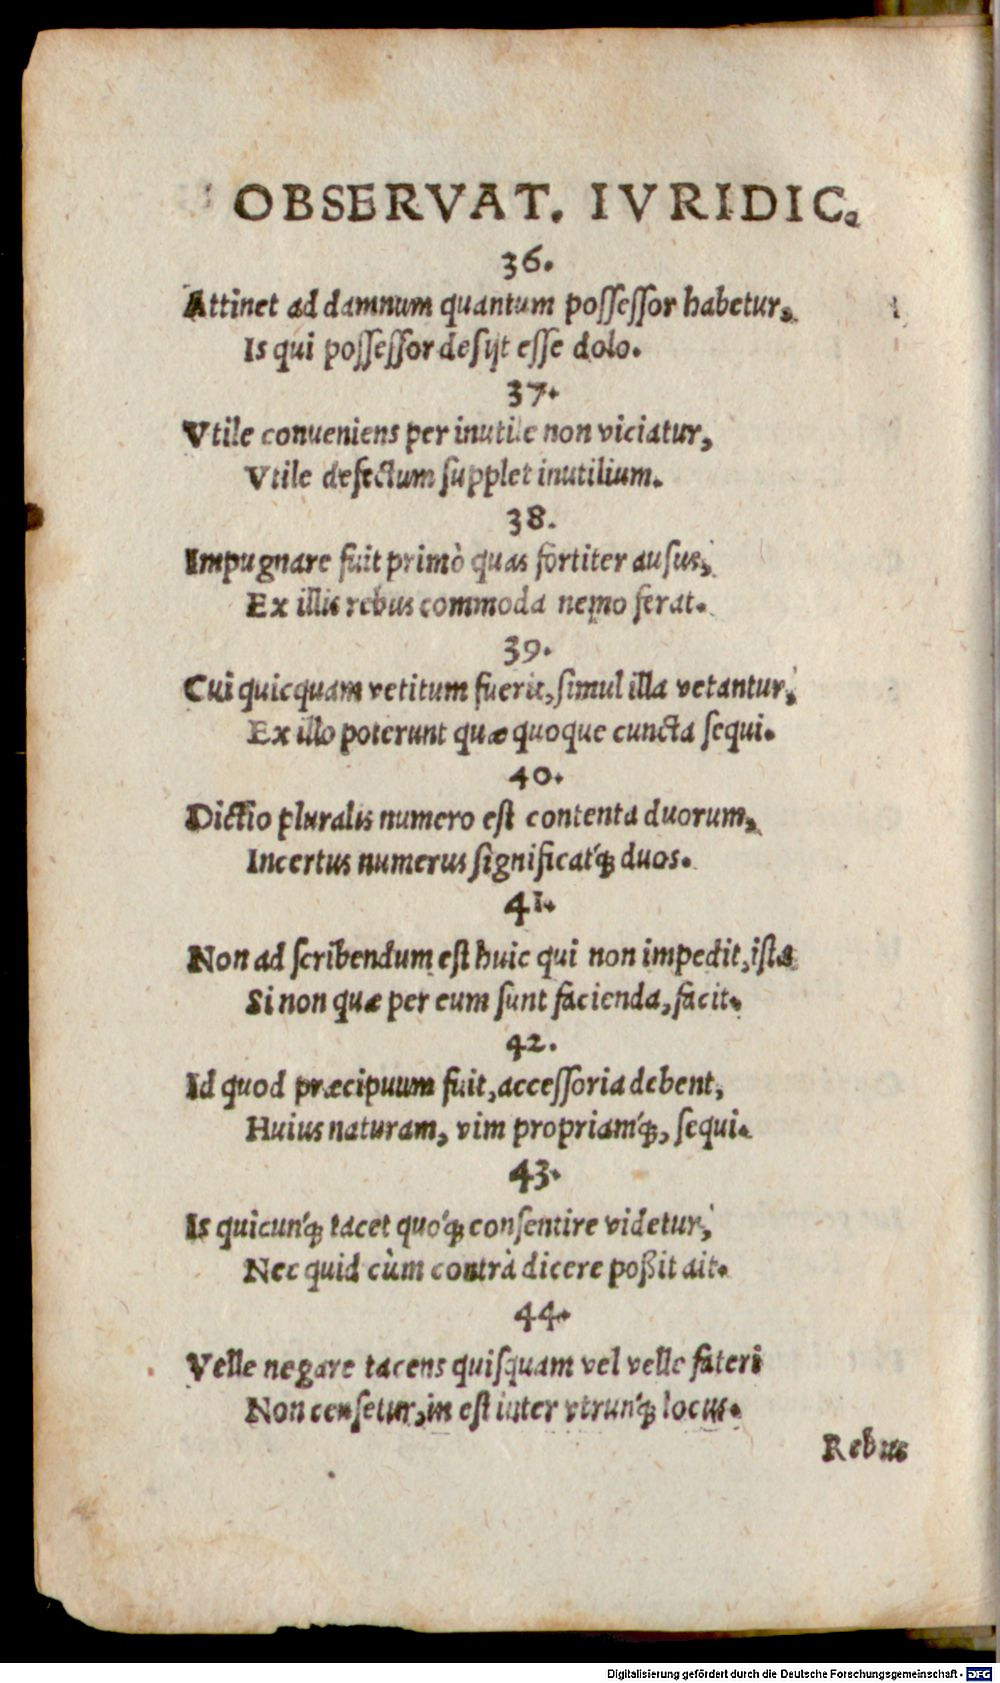 OBSERVAT. IVRIDIC.
36.
Attinet ad damnum quantum possessor habetur,
Is qui possessor desijt esse dolo.
37.
Vtile conueniens per inutile non viciatur,
Vtile defectum supplet inutilium.
38.
Impugnare fuit primò quas fortiter ausus,
Ex illis rebus commoda nemo ferat.
39.
Cui quicquam vetitum fuerit, simul illa vetantur,
Ex illo poterunt quæ quoque cuncta sequi.
40.
Dictio pluralis numero est contenta duorum,
Incertus numerus significatq́; duos.
41.
Non ad scribendum est huic qui non impedit, ista
Si non quæ per eum sunt facienda, facit.
42.
Id quod præcipuum fuit, accessoria debent,
Huius naturam, vim propriamq́;, sequi.
43.
Is quicunq́; tacet quoq́; consentire videtur,
Nec quid cùm contrà dicere poßit ait.
44.
Velle negare tacens quisquam vel velle fateri
Non censetur, in est inter vtrunq́; locus.
Rebus
Digitalisierung gefördert durch die Deutsche Forschungsgemeinschaft - DFG